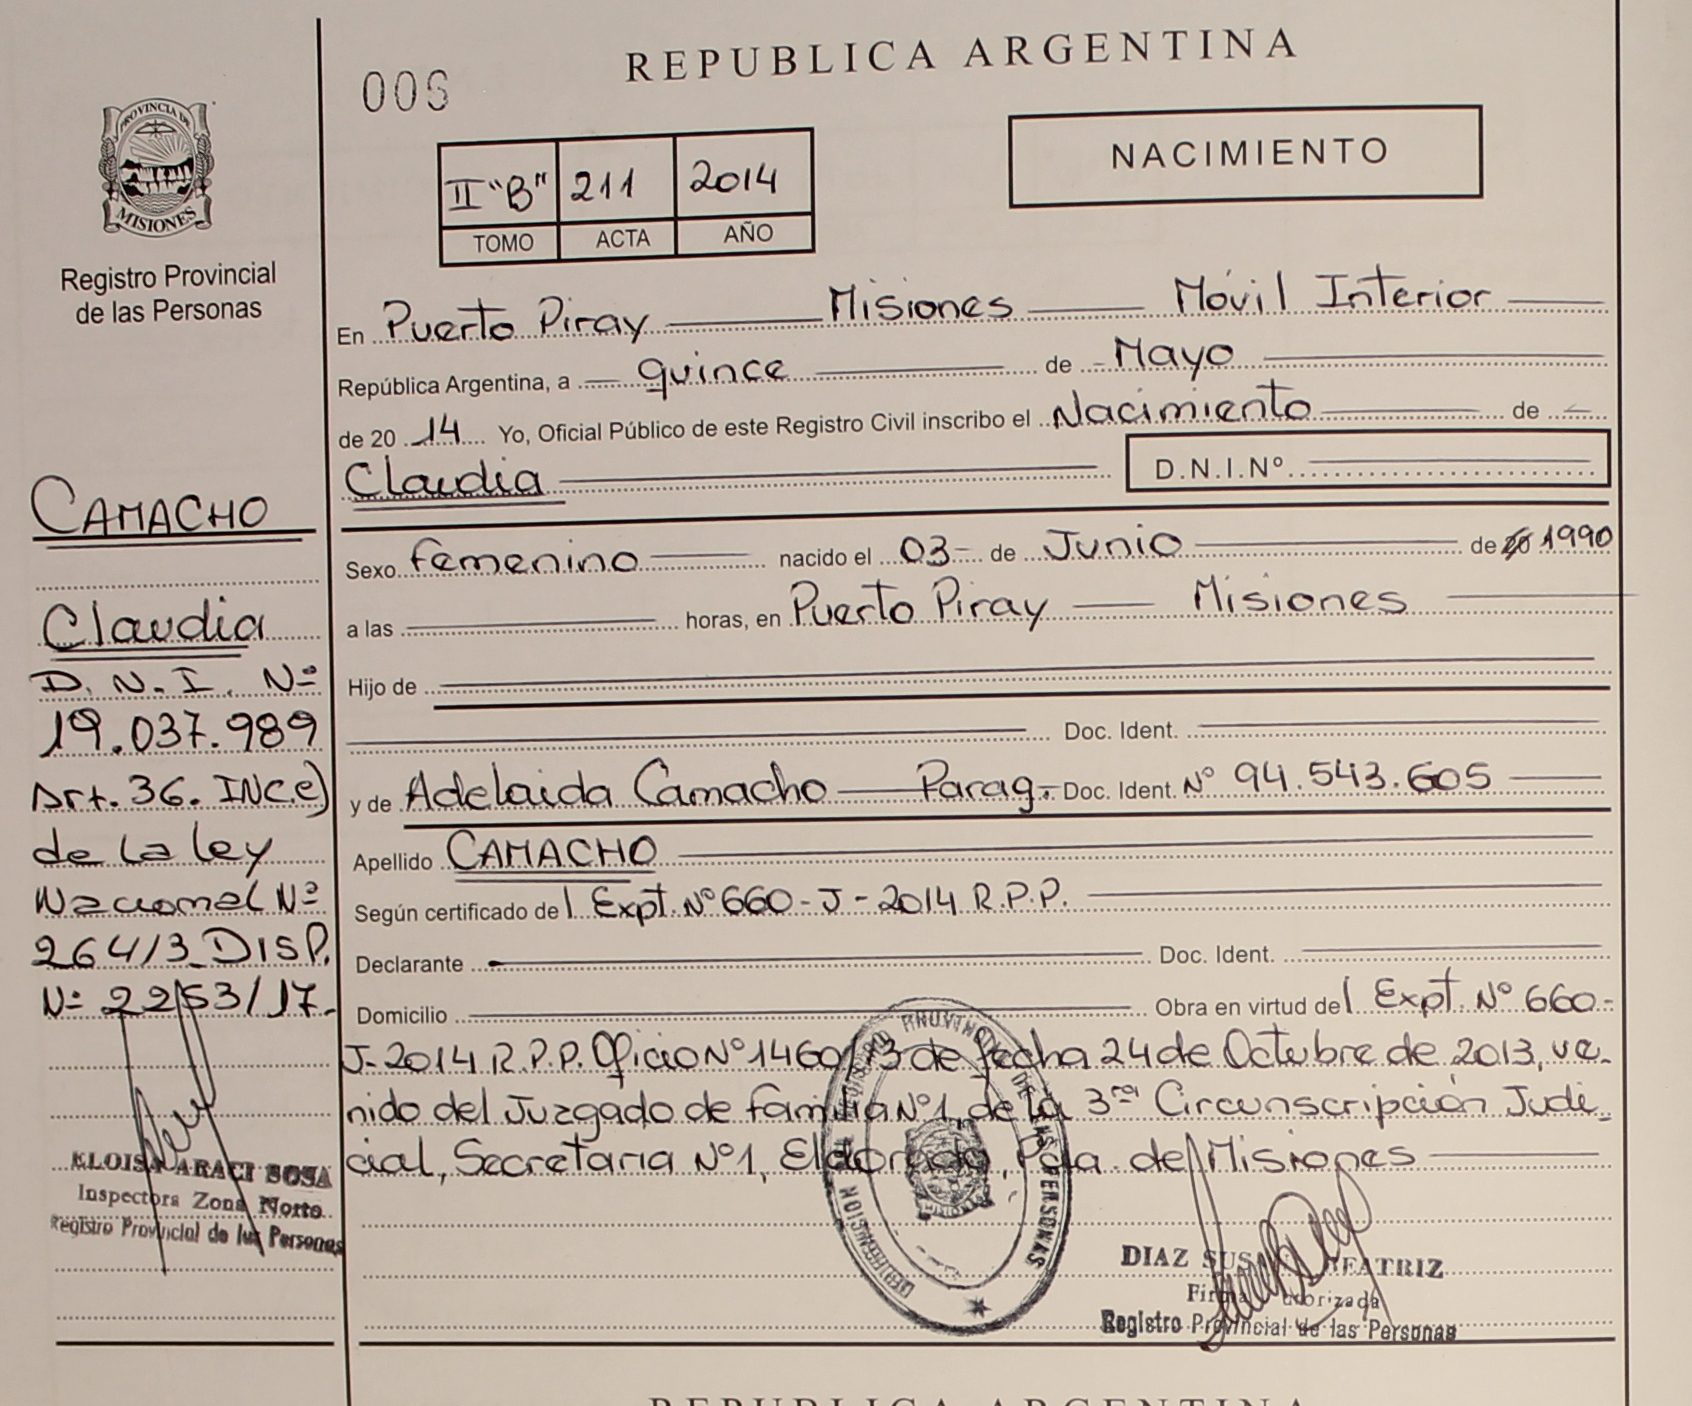 REPUBLICA ARGENTINA
006
NACIMIENTO
II "B" 211 2014
TOMO ACTA AÑO
PROVINCIA DE
MISIONES
Registro Provincial
de las Personas
En Puerto Piray Misiones Móvil Interior
República Argentina, a quince de Mayo
de 20 14 Yo, Oficial Público de este Registro Civil inscribo el Nacimiento de
Claudia D.N.I.Nº
Sexo femenino nacido el 03 de Junio de 20 1990
a las horas, en Puerto Piray Misiones
Hijo de
Doc. Ident.
y de Adelaida Camacho Parag. Doc. Ident. Nº 94.543.605
Apellido CAMACHO
Según certificado del Expt. Nº 660-J-2014 R.P.P.
Declarante Doc. Ident.
Domicilio Obra en virtud del Expt. Nº 660-
J-2014 R.P.P. Oficio Nº 1460/13 de fecha 24 de Octubre de 2013, ve-
nido del Juzgado de familia Nº1, de la 3ra Circunscripción Judi-
cial, Secretaria Nº1, Eldorado, Pcia. de Misiones
CAMACHO
Claudia
D.N.I. Nº
19.037.989
Art. 36. INC.e)
de La ley
Nacional Nº
26413 DISP.
Nº 2253/17.
ELOISA ARACI SOSA
Inspectora Zona Norte
Registro Provincial de las Personas
DIAZ SUSANA BEATRIZ
Firma Autorizada
Registro Provincial de las Personas
REPUBLICA ARGENTINA